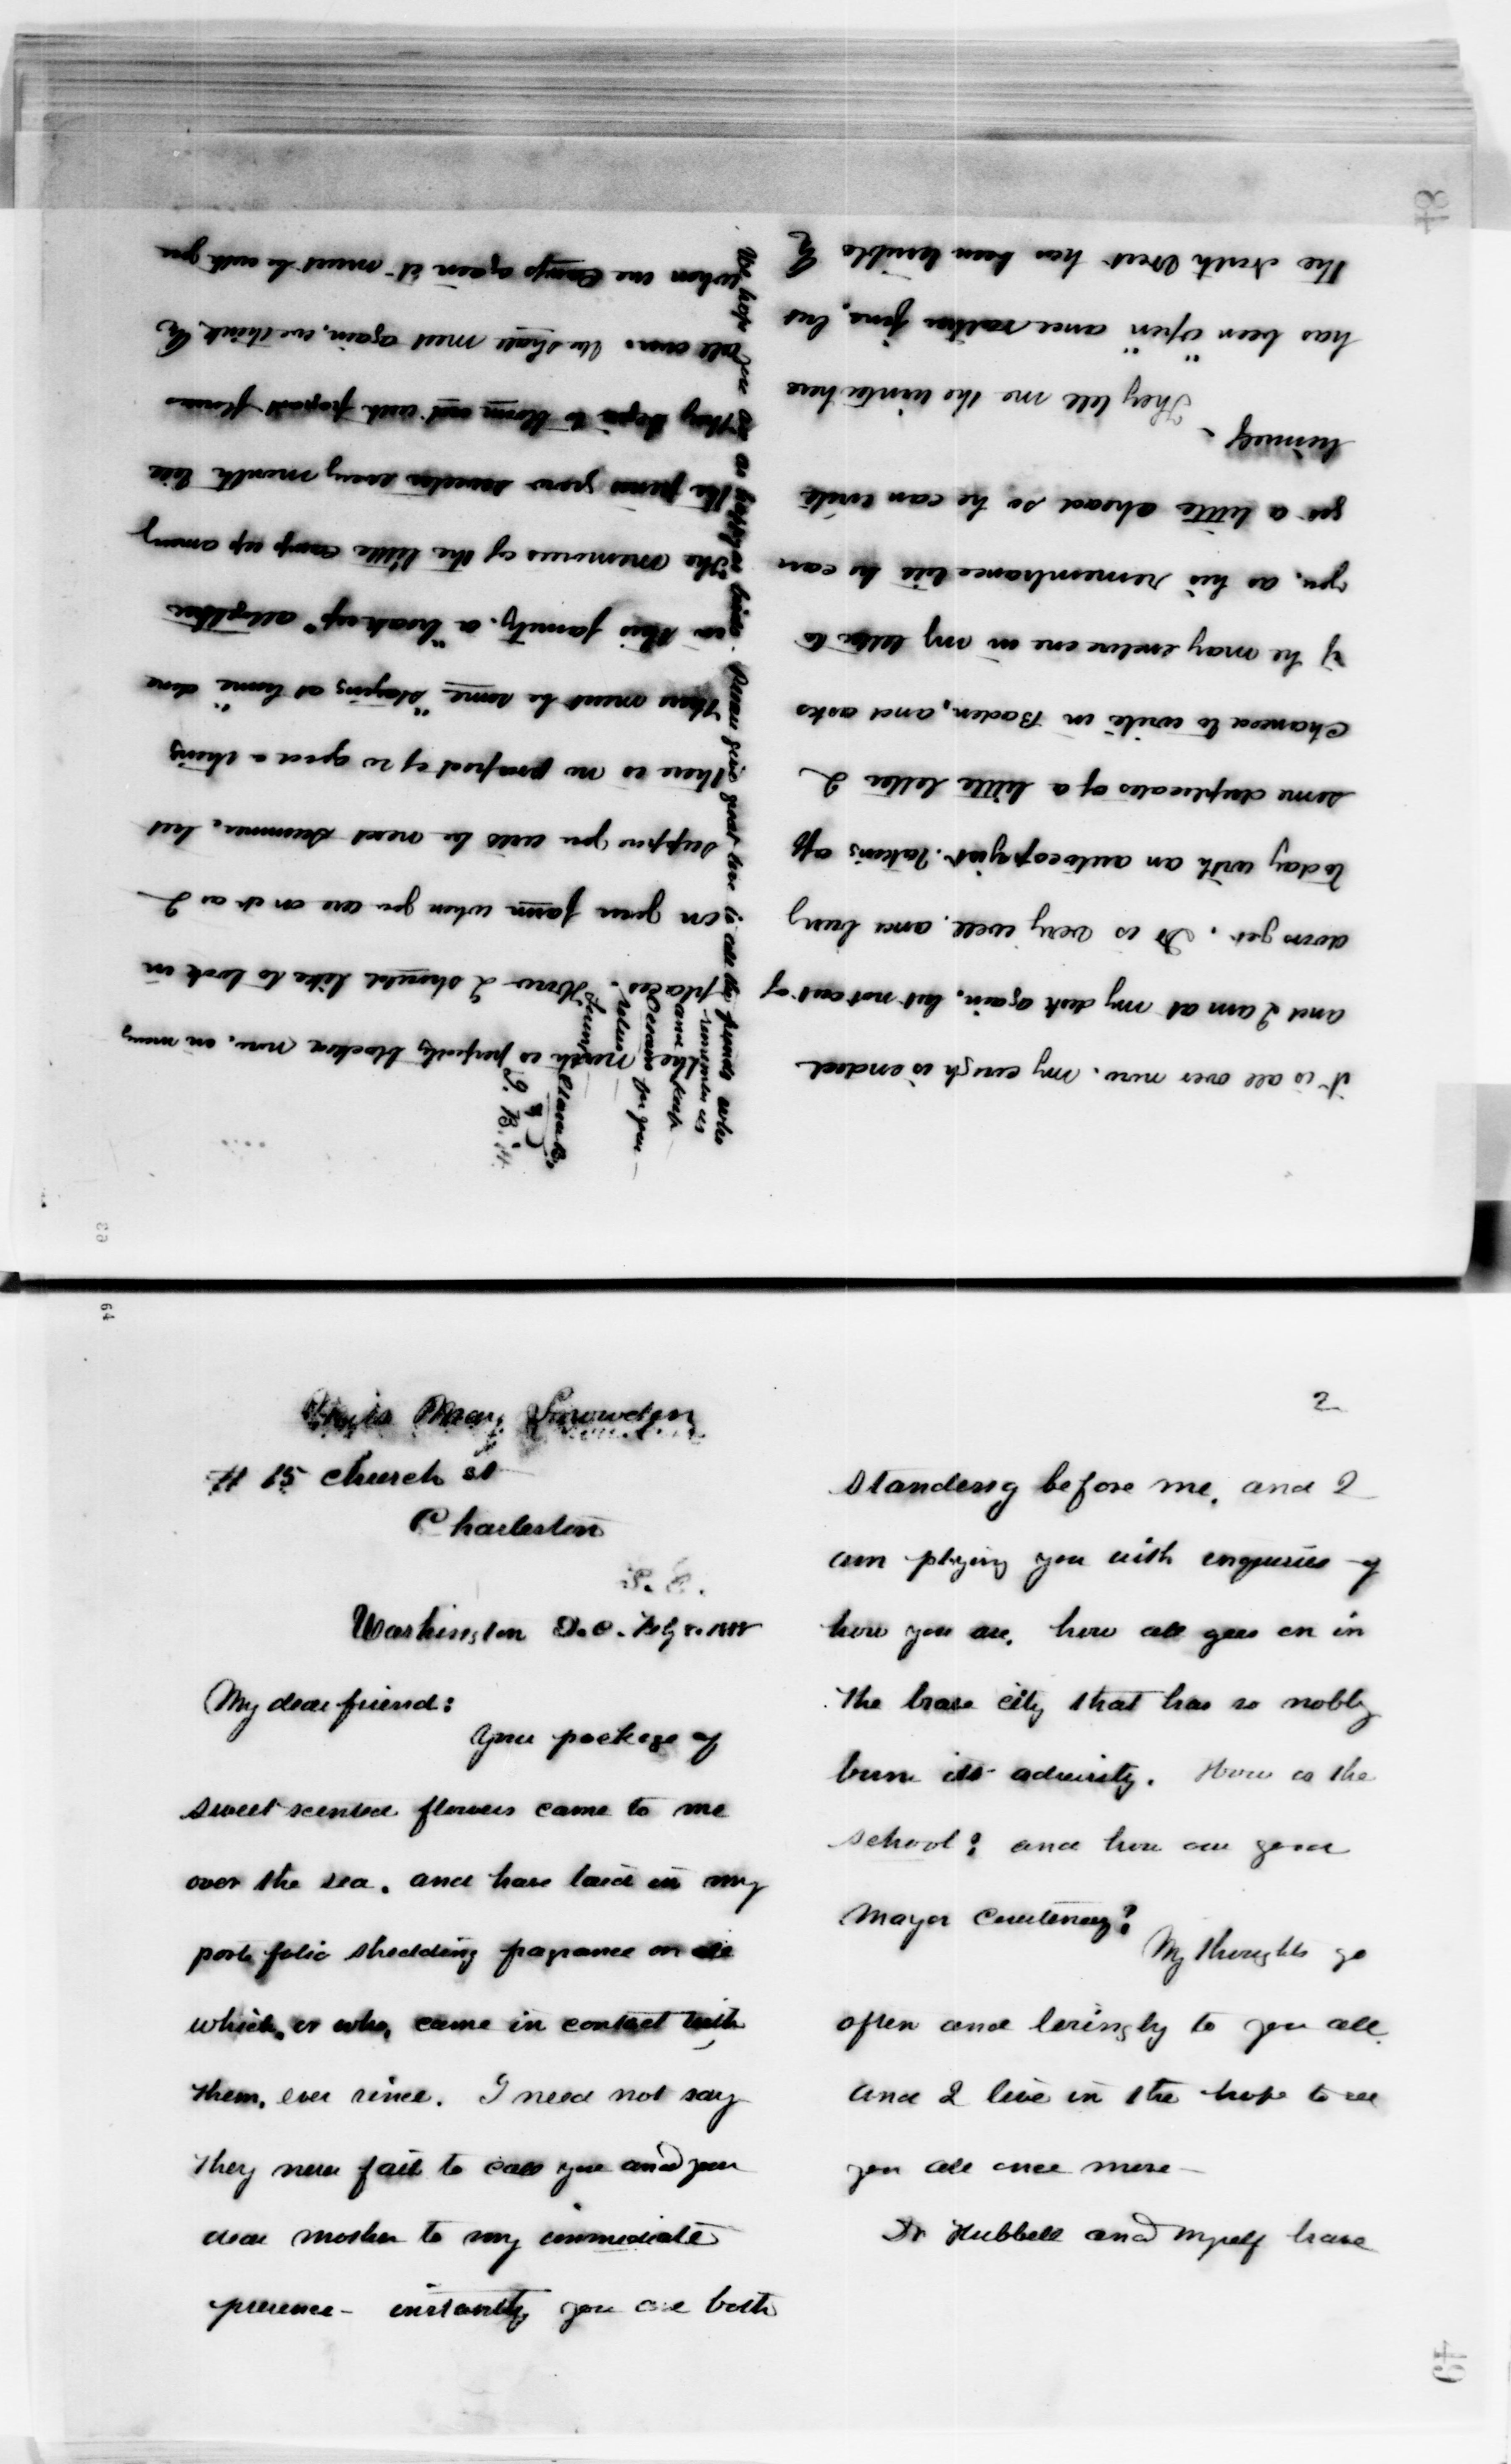 48
it is all over now. My cough is ended
and I am at my desk again, but not out of
doors yet. Dr is very well, and busy
today with an autocopyist. taking off
some duplicates of a little letter I
chanced to write in Baden, and asks
if he may enclose one in my letter to
you, as his remembrance till he can
get a little ahead so he can write
himself -
They tell me the winter here
has been "open" and rather fine, but
the North West has been terrible by
the north is perfectly blocked now, on many
places. How I should like to look in
on your farm when you are on it as I
suppose you will be next summer, but
there is no prospect of so good a thing
there must be some "staying at home" done
in this family. a "break up" altogether
The memories of the little camp up among
the pines grow sweeter every month till
they begin to bloom out with fragrant flowers
all over. We shall meet again, we think by
when we camp again it must be with you
We hope you are as happy as birds. Please give great love to all the friends who
remember us
and keep
Ocean for you -
Clara B.
& J. B. H.
63
64
Miss Mary Snowden
# 15 Church st
Charleston
S. C.
Washington D.C. Feby 8. 1888
My dear friend:
Your package of
sweet scented flowers came to me
over the sea, and have laid in my
port folio shedding fragrance on all
which, or who, came in contact with
them, ever since. I need not say
they never fail to call you and your
dear mother to my immediate
presence - instantly you are both
2
standing before me, and I
am plying you with enquiries of
how you are, how all goes on in
the brave city that has so nobly
born its adversity. How is the
school? and how our good
Mayor Courtenay?
My thoughts go
often and lovingly to you all
and I live in the hope to see
you all once more -
Dr Hubbell and myself have
49